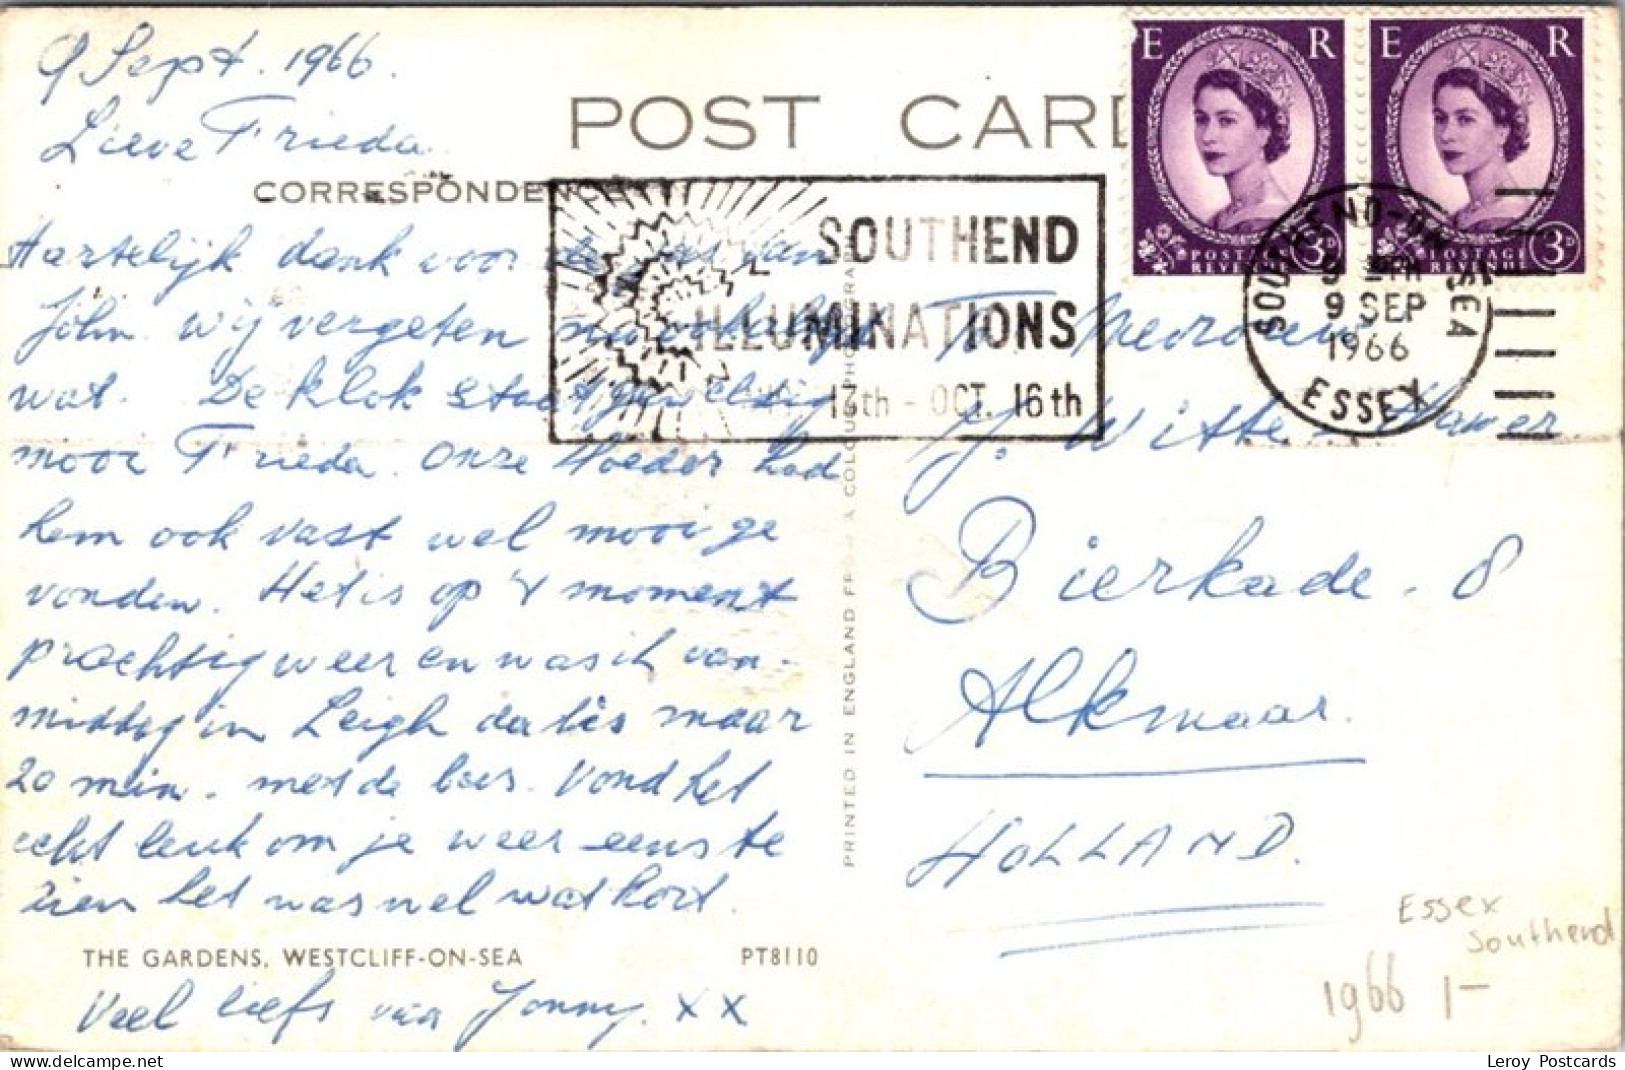 9 Sept. 1966.
Lieve Frieda.
POST CARD
CORRESPONDENCE
SOUTHEND
ILLUMINATIONS
13th - OCT. 16th
E R
3D
POSTAGE
REVENUE
E R
3D
POSTAGE
REVENUE
SOUTHEND-ON-SEA
9 SEP
1966
ESSEX
Hartelijk dank voor van
John. Wij vergeten
wat. De klok staat geweldig
mooi Frieda. Onze Moeder had
hem ook vast wel mooi ge
vonden. Het is op 't moment
prachtig weer en was ik van-
middag in Leigh dat is maar
20 min. met de boes. Vond het
echt leuk om je weer eens te
zien het was wel wat kort.
THE GARDENS, WESTCLIFF-ON-SEA PT8110
Veel liefs van Jonny. x x
PRINTED IN ENGLAND A COLOUR PHOTOGRAPH
To Mevrouw
J. Witte
Bierkade . 8
Alkmaar.
HOLLAND.
Essex
Southend
1966 1-
Leroy Postcards